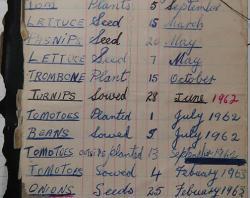 TOM Plants 5 September
LETTUCE Seed 15 March
PARSNIPS Seed 20 May
LETTUCE Seed 7 May
TROMBONE Plant 15 October
TURNIPS Sowed 28 June 1962
TOMOTOES Planted 1 July 1962
BEANS Sowed 9 July 1962
TOMOTOES planted 13 September 1962
TOMOTOES Sowed 4 Febuary 1963
ONIONS Seeds 25 Febuary 1963